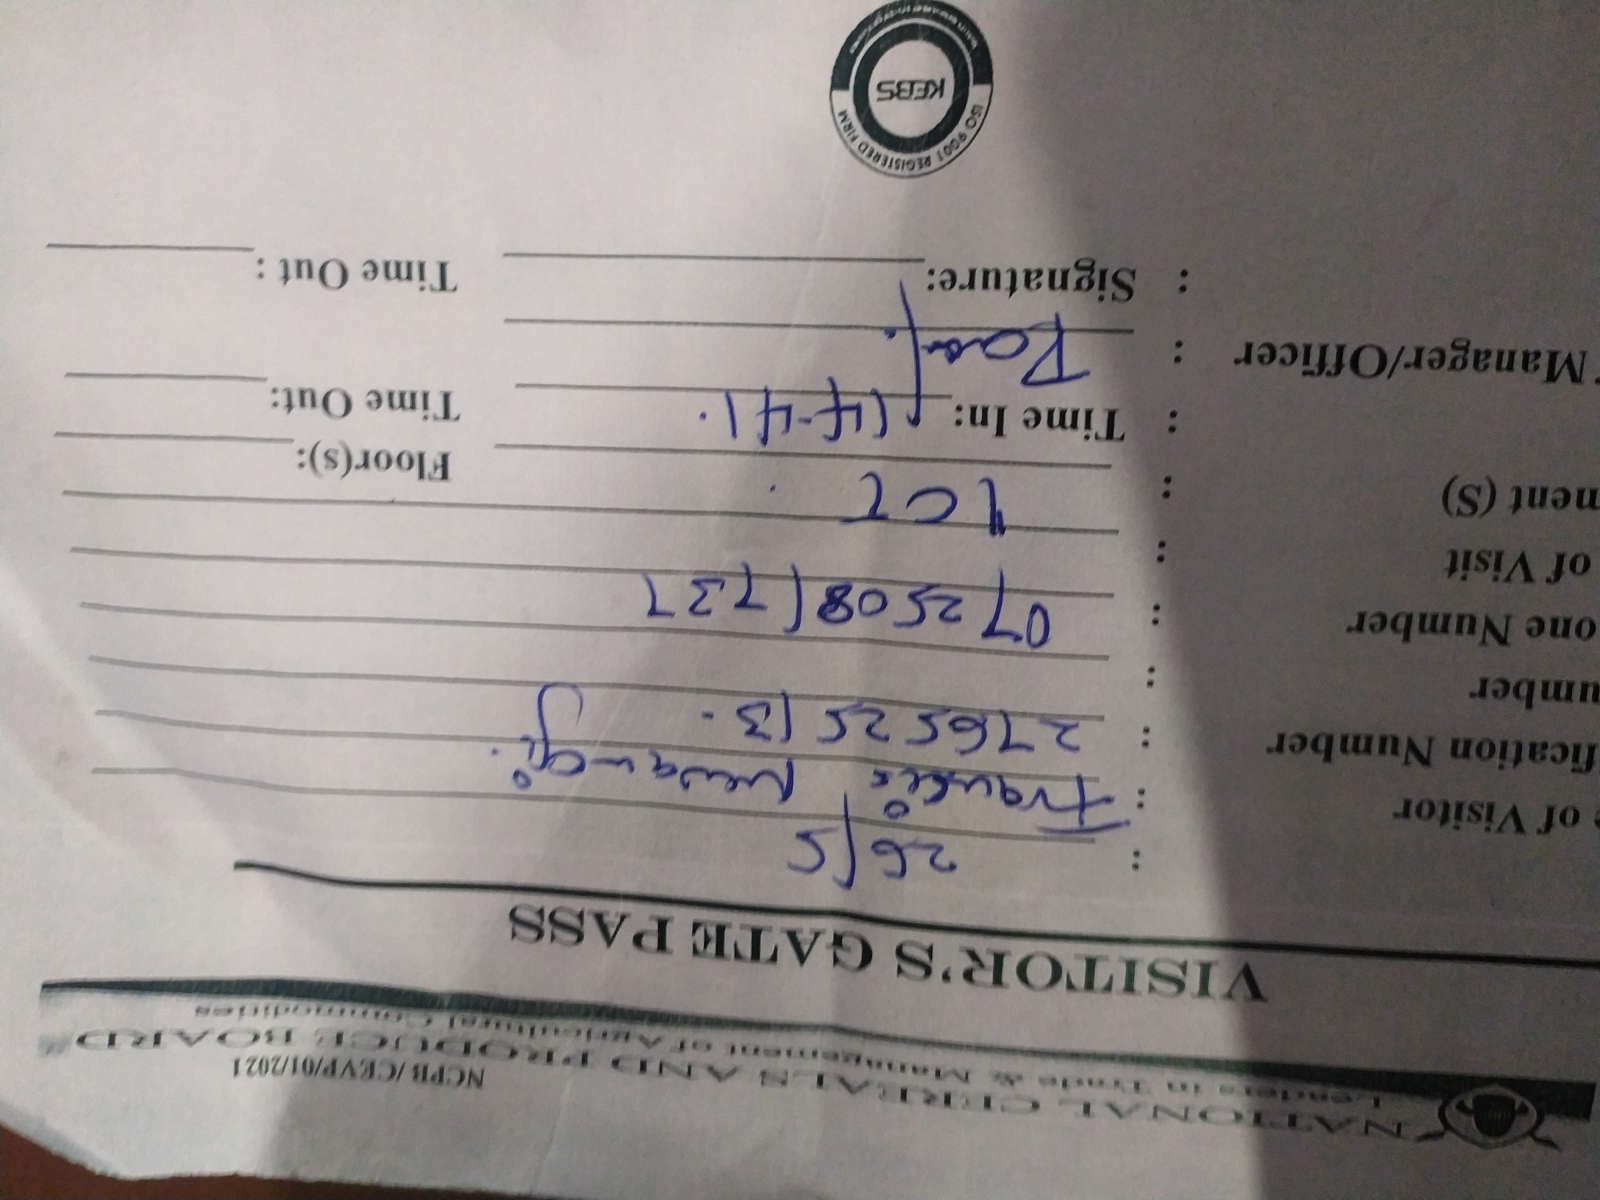 NCPB/CEVP/01/2021
NATIONAL CEREALS AND PRODUCE BOARD
Leaders in Trade & Management of Agricultural Commodities
VISITOR'S GATE PASS
: 26/5
e of Visitor : Francis
fication Number : 27652513.
umber :
one Number : 0725081737
of Visit :
ment (S) : ICT.
Floor(s):
: Time In: 14-41. Time Out:
Manager/Officer :
: Signature: Time Out :
ISO 9001 REGISTERED FIRM
KEBS